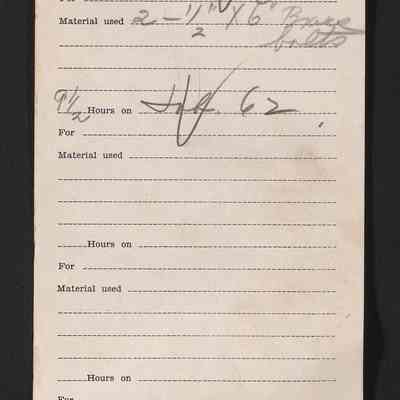 Material used 2 - 1/2" X 6" Brace
bolts
9 1/2 Hours on 62
For
Material used
Hours on
For
Material used
Hours on
For